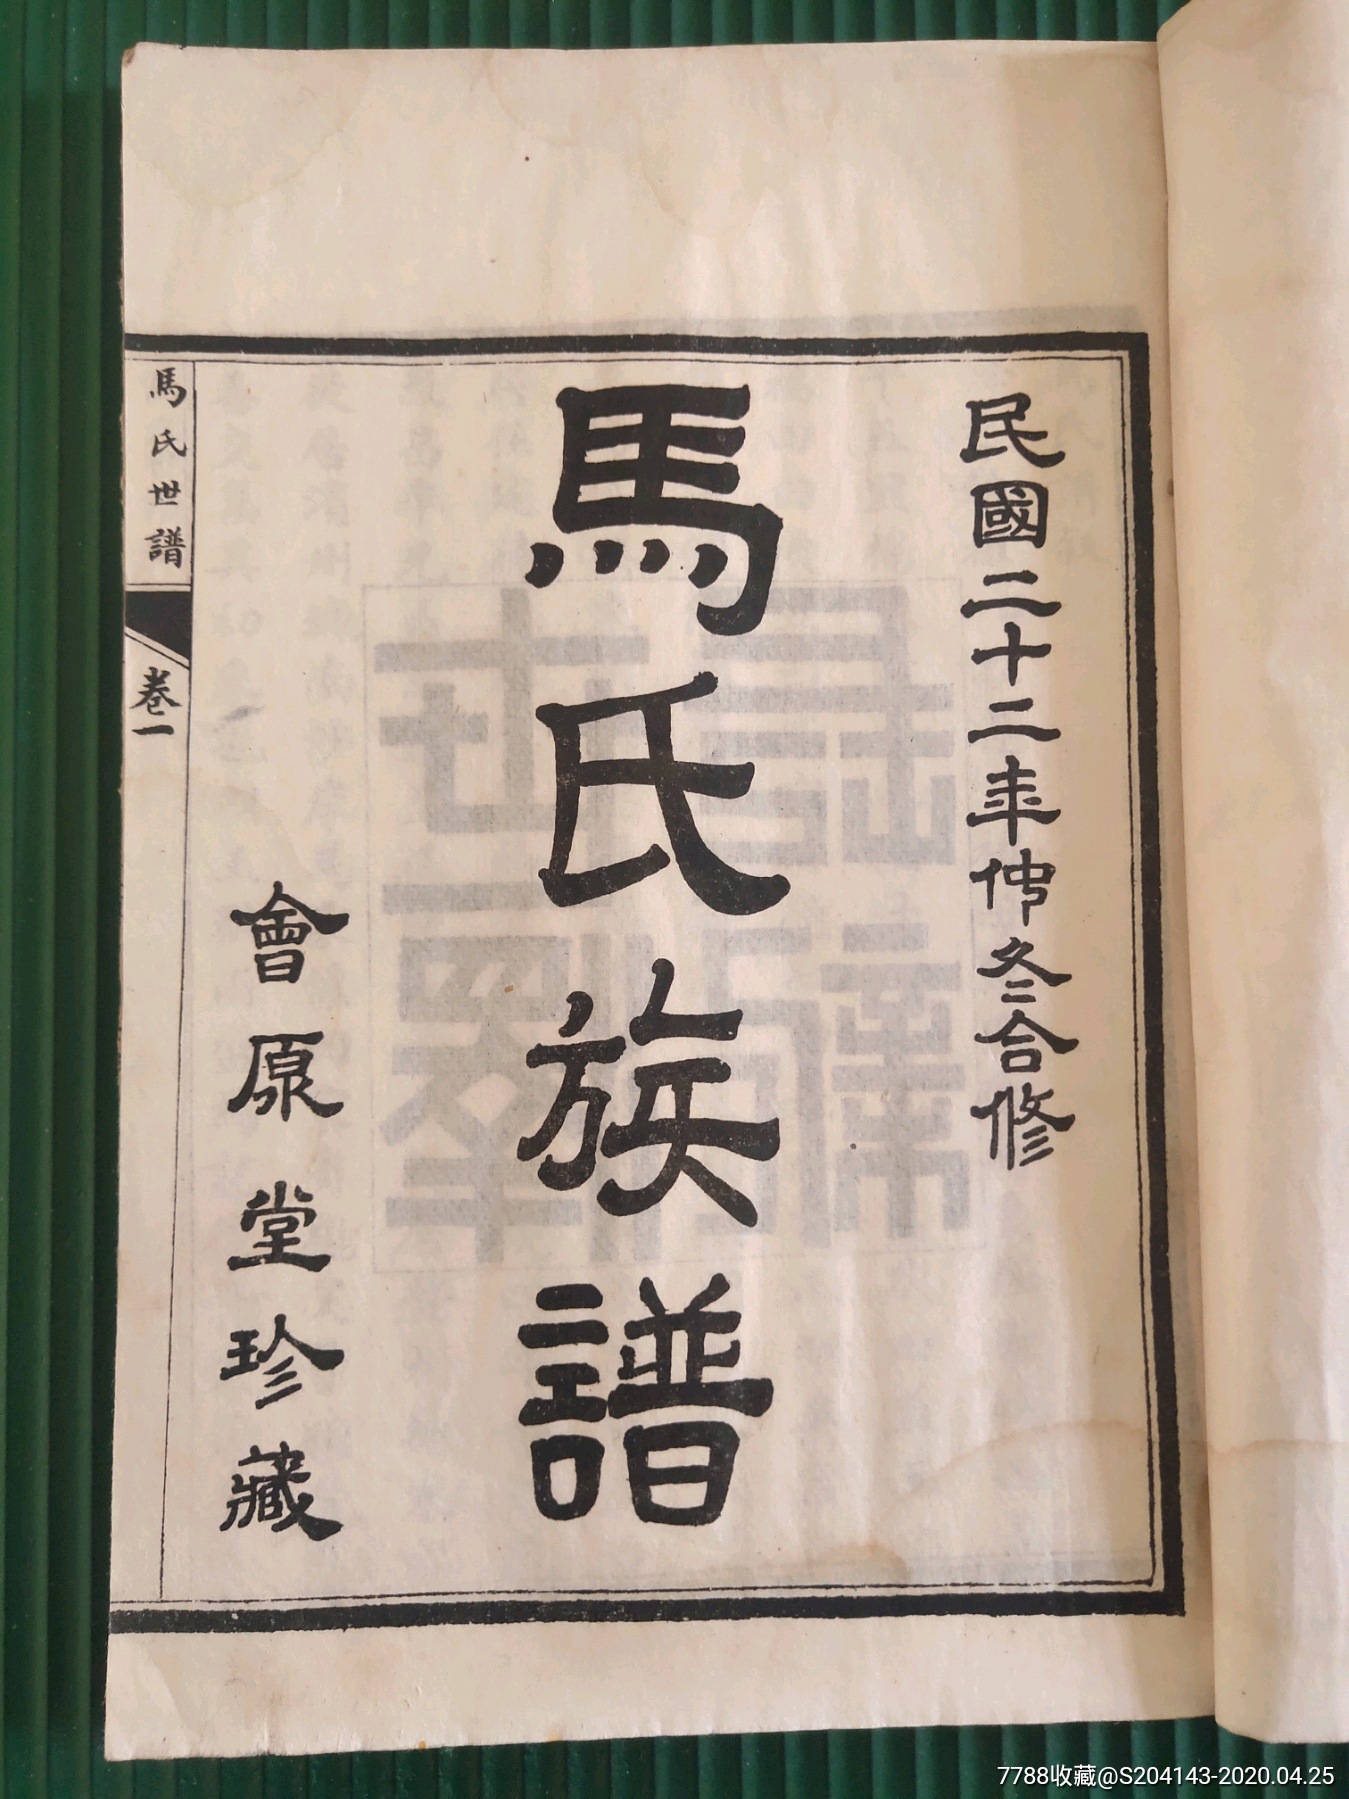 民國二十二年仲冬合修
馬氏族譜
會原堂珍藏
馬氏世譜
卷一
7788收藏@S204143-2020.04.25